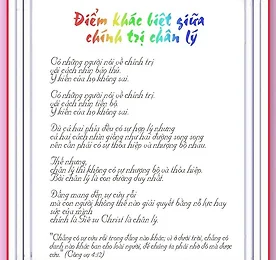 Điểm khác biệt giữa
chính trị chân lý
Có những người nói về chính trị
với cách nhìn bảo thủ.
Ý kiến của họ không sai.
Có những người nói về chính trị
với cách nhìn cấp tiến.
Ý kiến của họ không sai.
Dù cả hai phía đều có sự hợp lý nhưng
cả hai cách nhìn giống như hai đường song song
nên cần phải có sự thỏa hiệp và nhượng bộ nhau.
Thế nhưng,
chân lý thì không có sự nhượng bộ và thỏa hiệp.
Bởi chân lý là con đường duy nhất.
Đấng mang đến sự cứu rỗi
mà con người không thể nào giải quyết bằng nỗ lực hay
sức của mình
chính là Giê su Christ là chân lý.
"Chẳng có sự cứu rỗi trong đấng nào khác; vì ở dưới trời, chẳng có
danh nào khác ban cho loài người, để chúng ta phải nhờ đó mà được
cứu. (Công vụ 4:12)